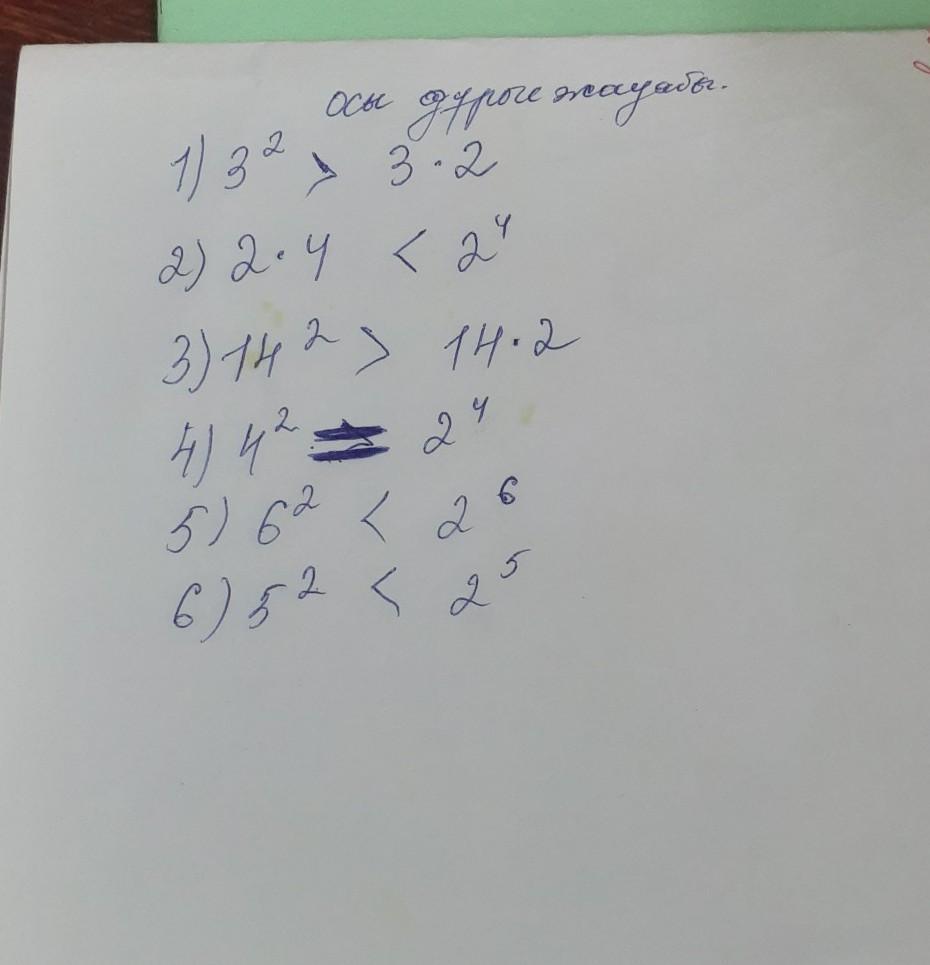 осы дұрыс жауабы.
1) 3² > 3·2
2) 2·4 < 2⁴
3) 14² > 14·2
4) 4² = 2⁴
5) 6² < 2⁶
6) 5² < 2⁵